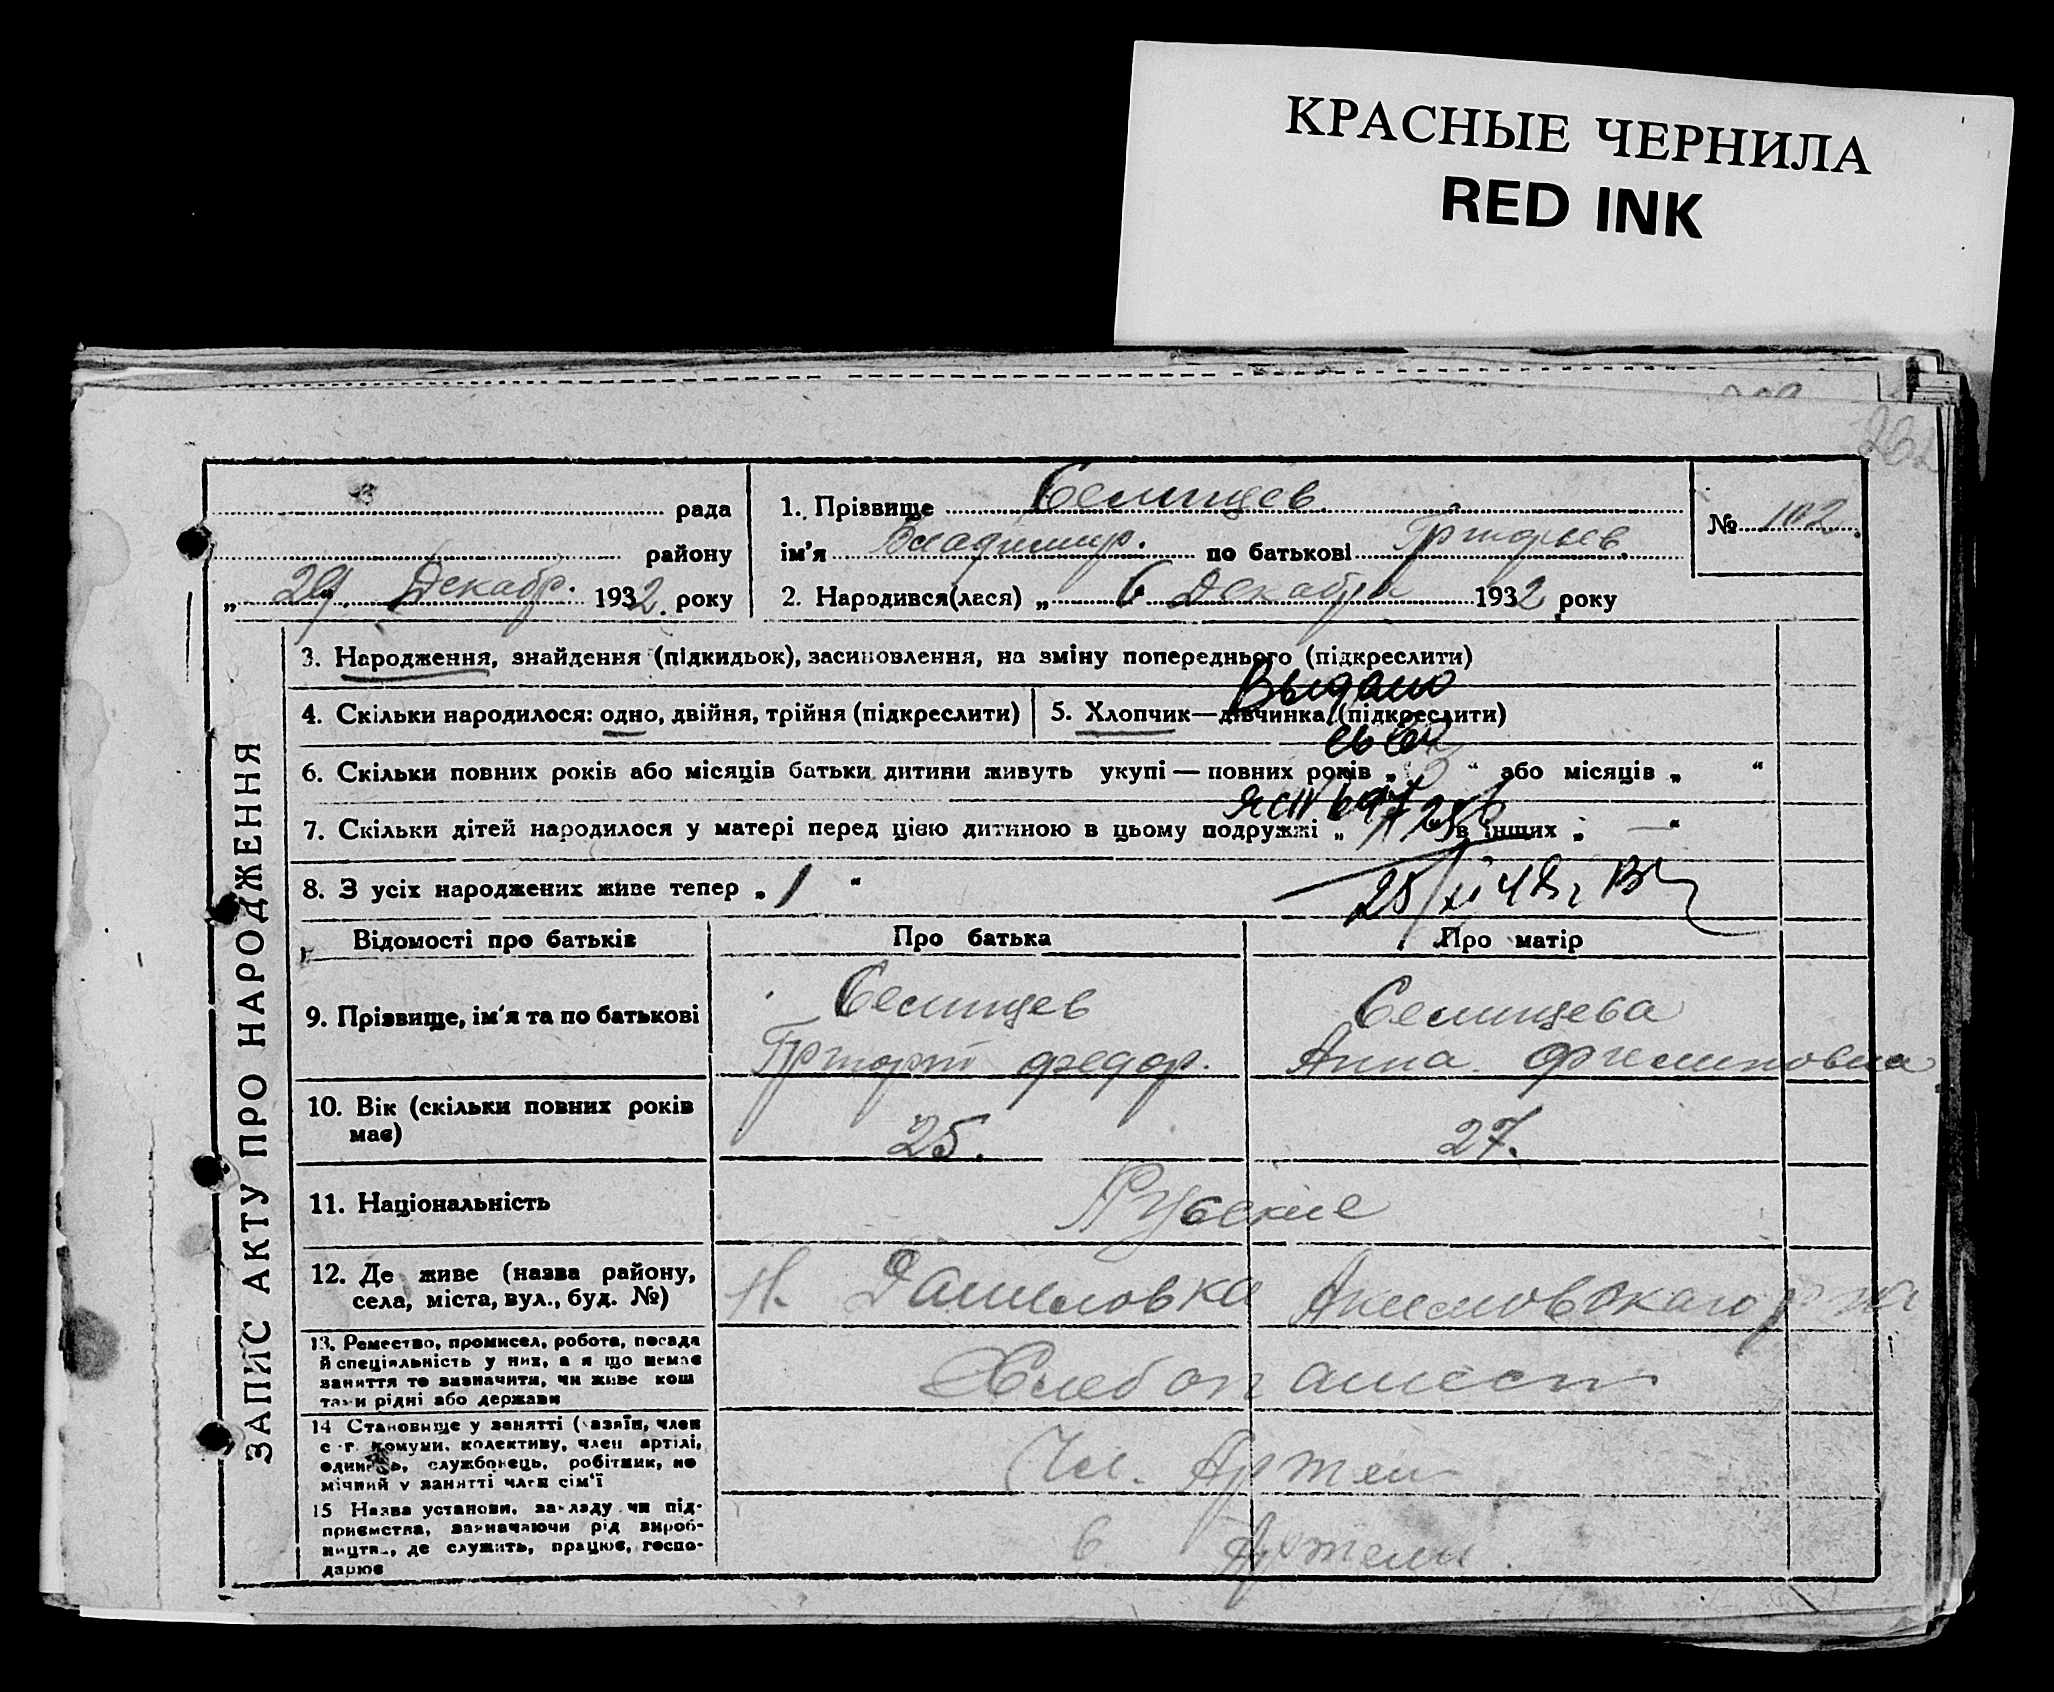 КРАСНЫЕ ЧЕРНИЛА
RED INK
рада
району
„ 29 “ Декабр. 1932. року
1. Прізвище Селищев
ім'я Владимир. по батькові Григорьев.
2. Народився(лася) „ 6 Декабря 1932 року
№ 102.
ЗАПИС АКТУ ПРО НАРОДЖЕННЯ
3. Народження, знайдення (підкидьок), засиновлення, на зміну попереднього (підкреслити)
Выдано
4. Скільки народилося: одно, двійня, трійня (підкреслити)
5. Хлопчик—дівчинка (підкреслити)
6. Скільки повних років або місяців батьки дитини живуть укупі — повних років „ “ або місяців „ “
7. Скільки дітей народилося у матері перед цією дитиною в цьому подружжі „ “ в інших „ — “
8. З усіх народжених живе тепер „ 1 “
Відомості про батьків
Про батька
Про матір
9. Прізвище, ім'я та по батькові
Селищев
Григорий Федор.
Селищева
Анна Филиповна
10. Вік (скільки повних років має)
25.
27.
11. Національність
Русские
12. Де живе (назва району, села, міста, вул., буд. №)
Н. Даниловка Акимовскаго р-на
13. Ремество, промисел, робота, посада
й спеціяльність у них, а я що немає
заняття то визначити, чи живе кош
тами рідні або держави
Хлебопашест
14 Становище у занятті (хазяїн, член
с-г. комуни, колективу, член артілі,
одинець, службовець, робітник, по
мічний у занятті член сім'ї
Чл. Артели
15 Назва установи, закладу чи під-
приємства, зазначаючи рід вироб-
ництва, де служить, працює, госпо-
дарює
в Артели.